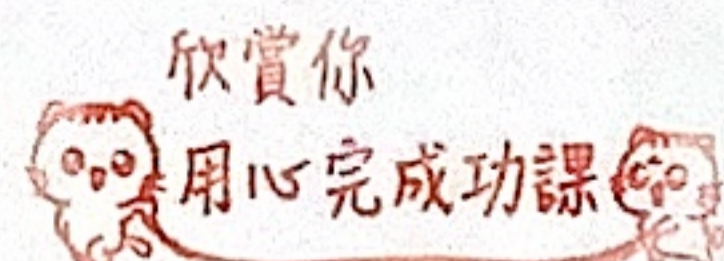 欣賞你
用心完成功課